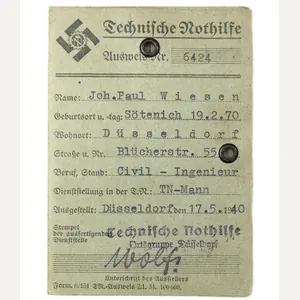 Technische Nothilfe
Ausweis Nr. 6424
Name: Joh. Paul Wiesen
Geburtsort u. -tag: Sötenich 19.2.70
Wohnort: Düsseldorf
Straße u. Nr. Blücherstr. 55
Beruf, Stand: Civil - Ingenieur
Dienststellung in der T.N.: TN-Mann
Ausgestellt: Düsseldorf den 17.5.1940
Stempel
der ausfertigenden
Dienststelle
Technische Nothilfe
Ortsgruppe Düsseldorf
Wolf
Unterschrift des Ausstellers
Form. TN-Ausweis